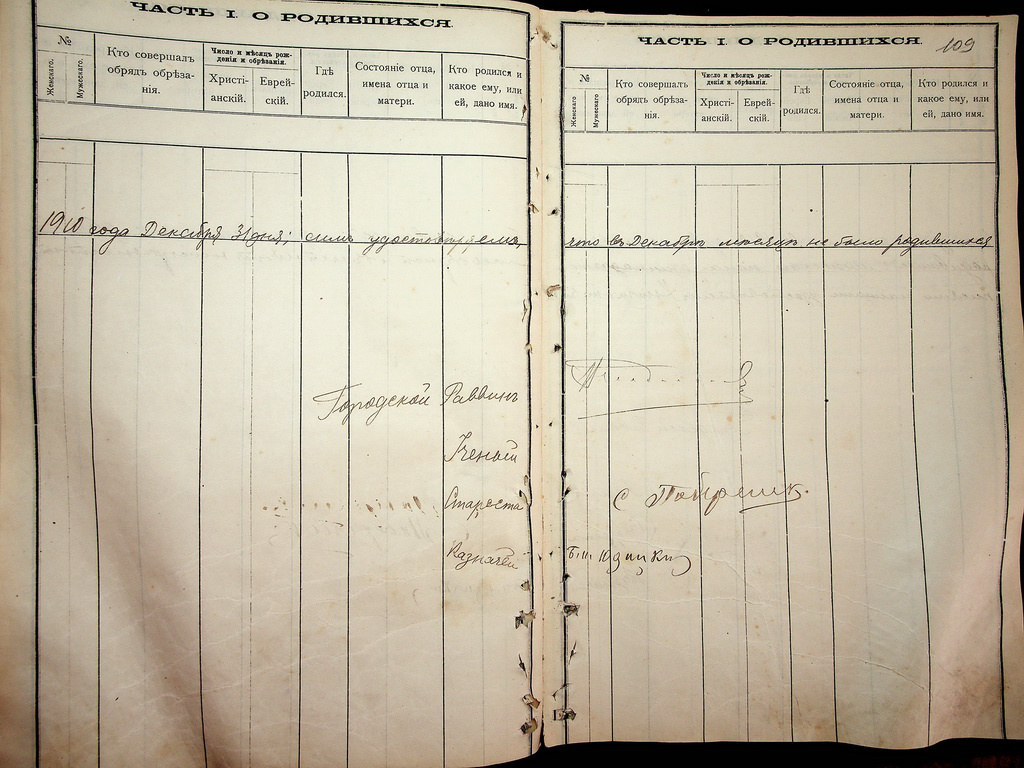 ЧАСТЬ I. О РОДИВШИХСЯ.
№
Женскаго.
Мужескаго.
Кто совершалъ обрядъ обрѣза-нія.
Число и мѣсяцъ рож-денія и обрѣзанія.
Христі-анскій.
Еврей-скій.
Гдѣ родился.
Состояніе отца, имена отца и матери.
Кто родился и какое ему, или ей, дано имя.
ЧАСТЬ I. О РОДИВШИХСЯ.
109
№
Женскаго
Мужескаго
Кто совершалъ обрядъ обрѣза-нія.
Число и мѣсяцъ рож-денія и обрѣзанія.
Христі-анскій.
Еврей-скій.
Гдѣ родился.
Состояніе отца, имена отца и матери.
Кто родился и какое ему, или ей, дано имя.
1910 года Декабря 31 дня; симъ удостовѣряемъ, что въ Декабрѣ мѣсяцѣ не было родившихся
Городской Раввинъ
Ученый
Староста С
Казначей